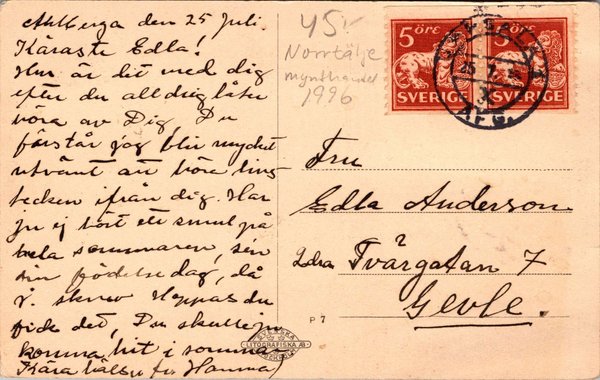 Ahlberga den 25 juli.
Käraste Edla!
Hur är det med dig
efter du alldrig låter
höra av Dig. Du
förstår jag blir mycket
utvänt att höra lifs
tecken ifrån dig. Har
ju ej hört ett smul på
hela sommaren, sen
din födelsedag, då
skrev Hoppas du
fick det, Du skulle ju
komma hit i sommar
Kära hälsn fr Hanna
45:-
Norrtälje
mynthandel
1996
5 ÖRE
SVERIGE
5 ÖRE
SVERIGE
UPSALA
25
AFG.
Fru
Edla Anderson
2dra Tvärgatan 7
Gevle.
P 7
SVENSKA
LITOGRAFISKA AB